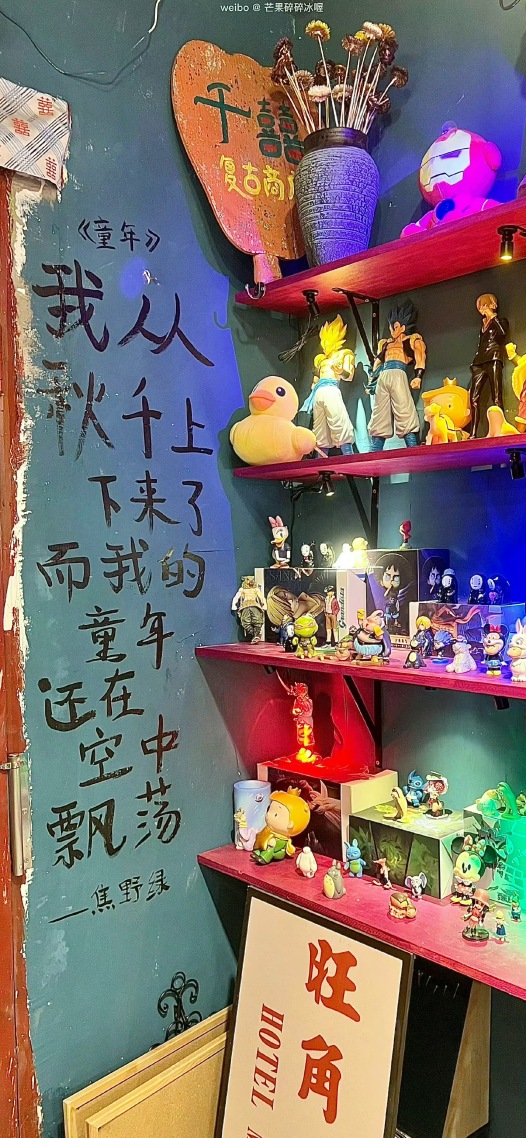 weibo @ 芒果碎碎冰喔
千囍
复古商店
《童年》
我从
秋千上
下来了
而我的
童年
还在
空中
飘荡
—焦野绿
旺角
HOTEL